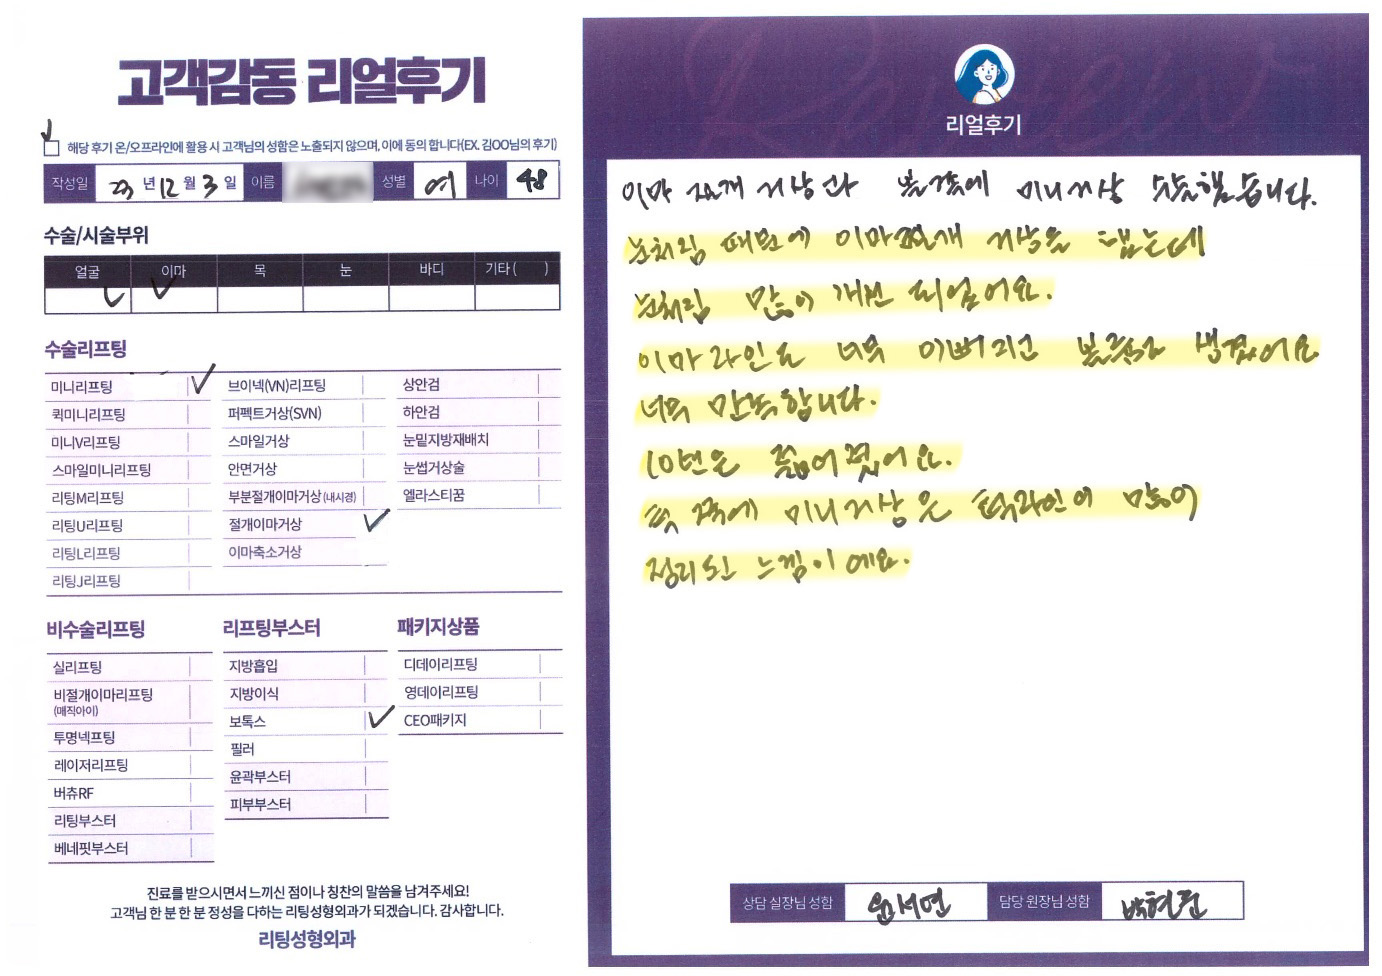 고객감동 리얼후기
해당 후기 온/오프라인에 활용 시 고객님의 성함은 노출되지 않으며, 이에 동의 합니다(EX. 김OO님의 후기)
작성일 23 년 12 월 3 일 이름 성별 여 나이 48
수술/시술부위
얼굴 이마 목 눈 바디 기타 ( )
수술리프팅
미니리프팅 브이넥(VN)리프팅 상안검
퀵미니리프팅 퍼펙트거상(SVN) 하안검
미니V리프팅 스마일거상 눈밑지방재배치
스마일미니리프팅 안면거상 눈썹거상술
리팅M리프팅 부분절개이마거상 (내시경) 엘라스티꿈
리팅U리프팅 절개이마거상
리팅L리프팅 이마축소거상
리팅J리프팅
비수술리프팅 리프팅부스터 패키지상품
실리프팅 지방흡입 디데이리프팅
비절개이마리프팅 지방이식 영데이리프팅
(매직아이)
보톡스 CEO패키지
투명넥프팅 필러
레이저리프팅 윤곽부스터
버츄RF 피부부스터
리팅부스터
베네핏부스터
진료를 받으시면서 느끼신 점이나 칭찬의 말씀을 남겨주세요!
고객님 한 분 한 분 정성을 다하는 리팅성형외과가 되겠습니다. 감사합니다.
리팅성형외과
리얼후기
이마 절개 거상과 볼쪽에 미니거상 수술했습니다.
눈처짐 때문에 이마절개 거상을 했는데
눈처짐 많이 개선 되었어요.
이마라인도 너무 이뻐지고 볼륨도 생겼어요
너무 만족합니다.
10년은 젊어졌어요.
턱 쪽에 미니거상은 턱라인이 많이
정리된 느낌이에요.
상담 실장님 성함 윤서연 담당 원장님 성함 박현준